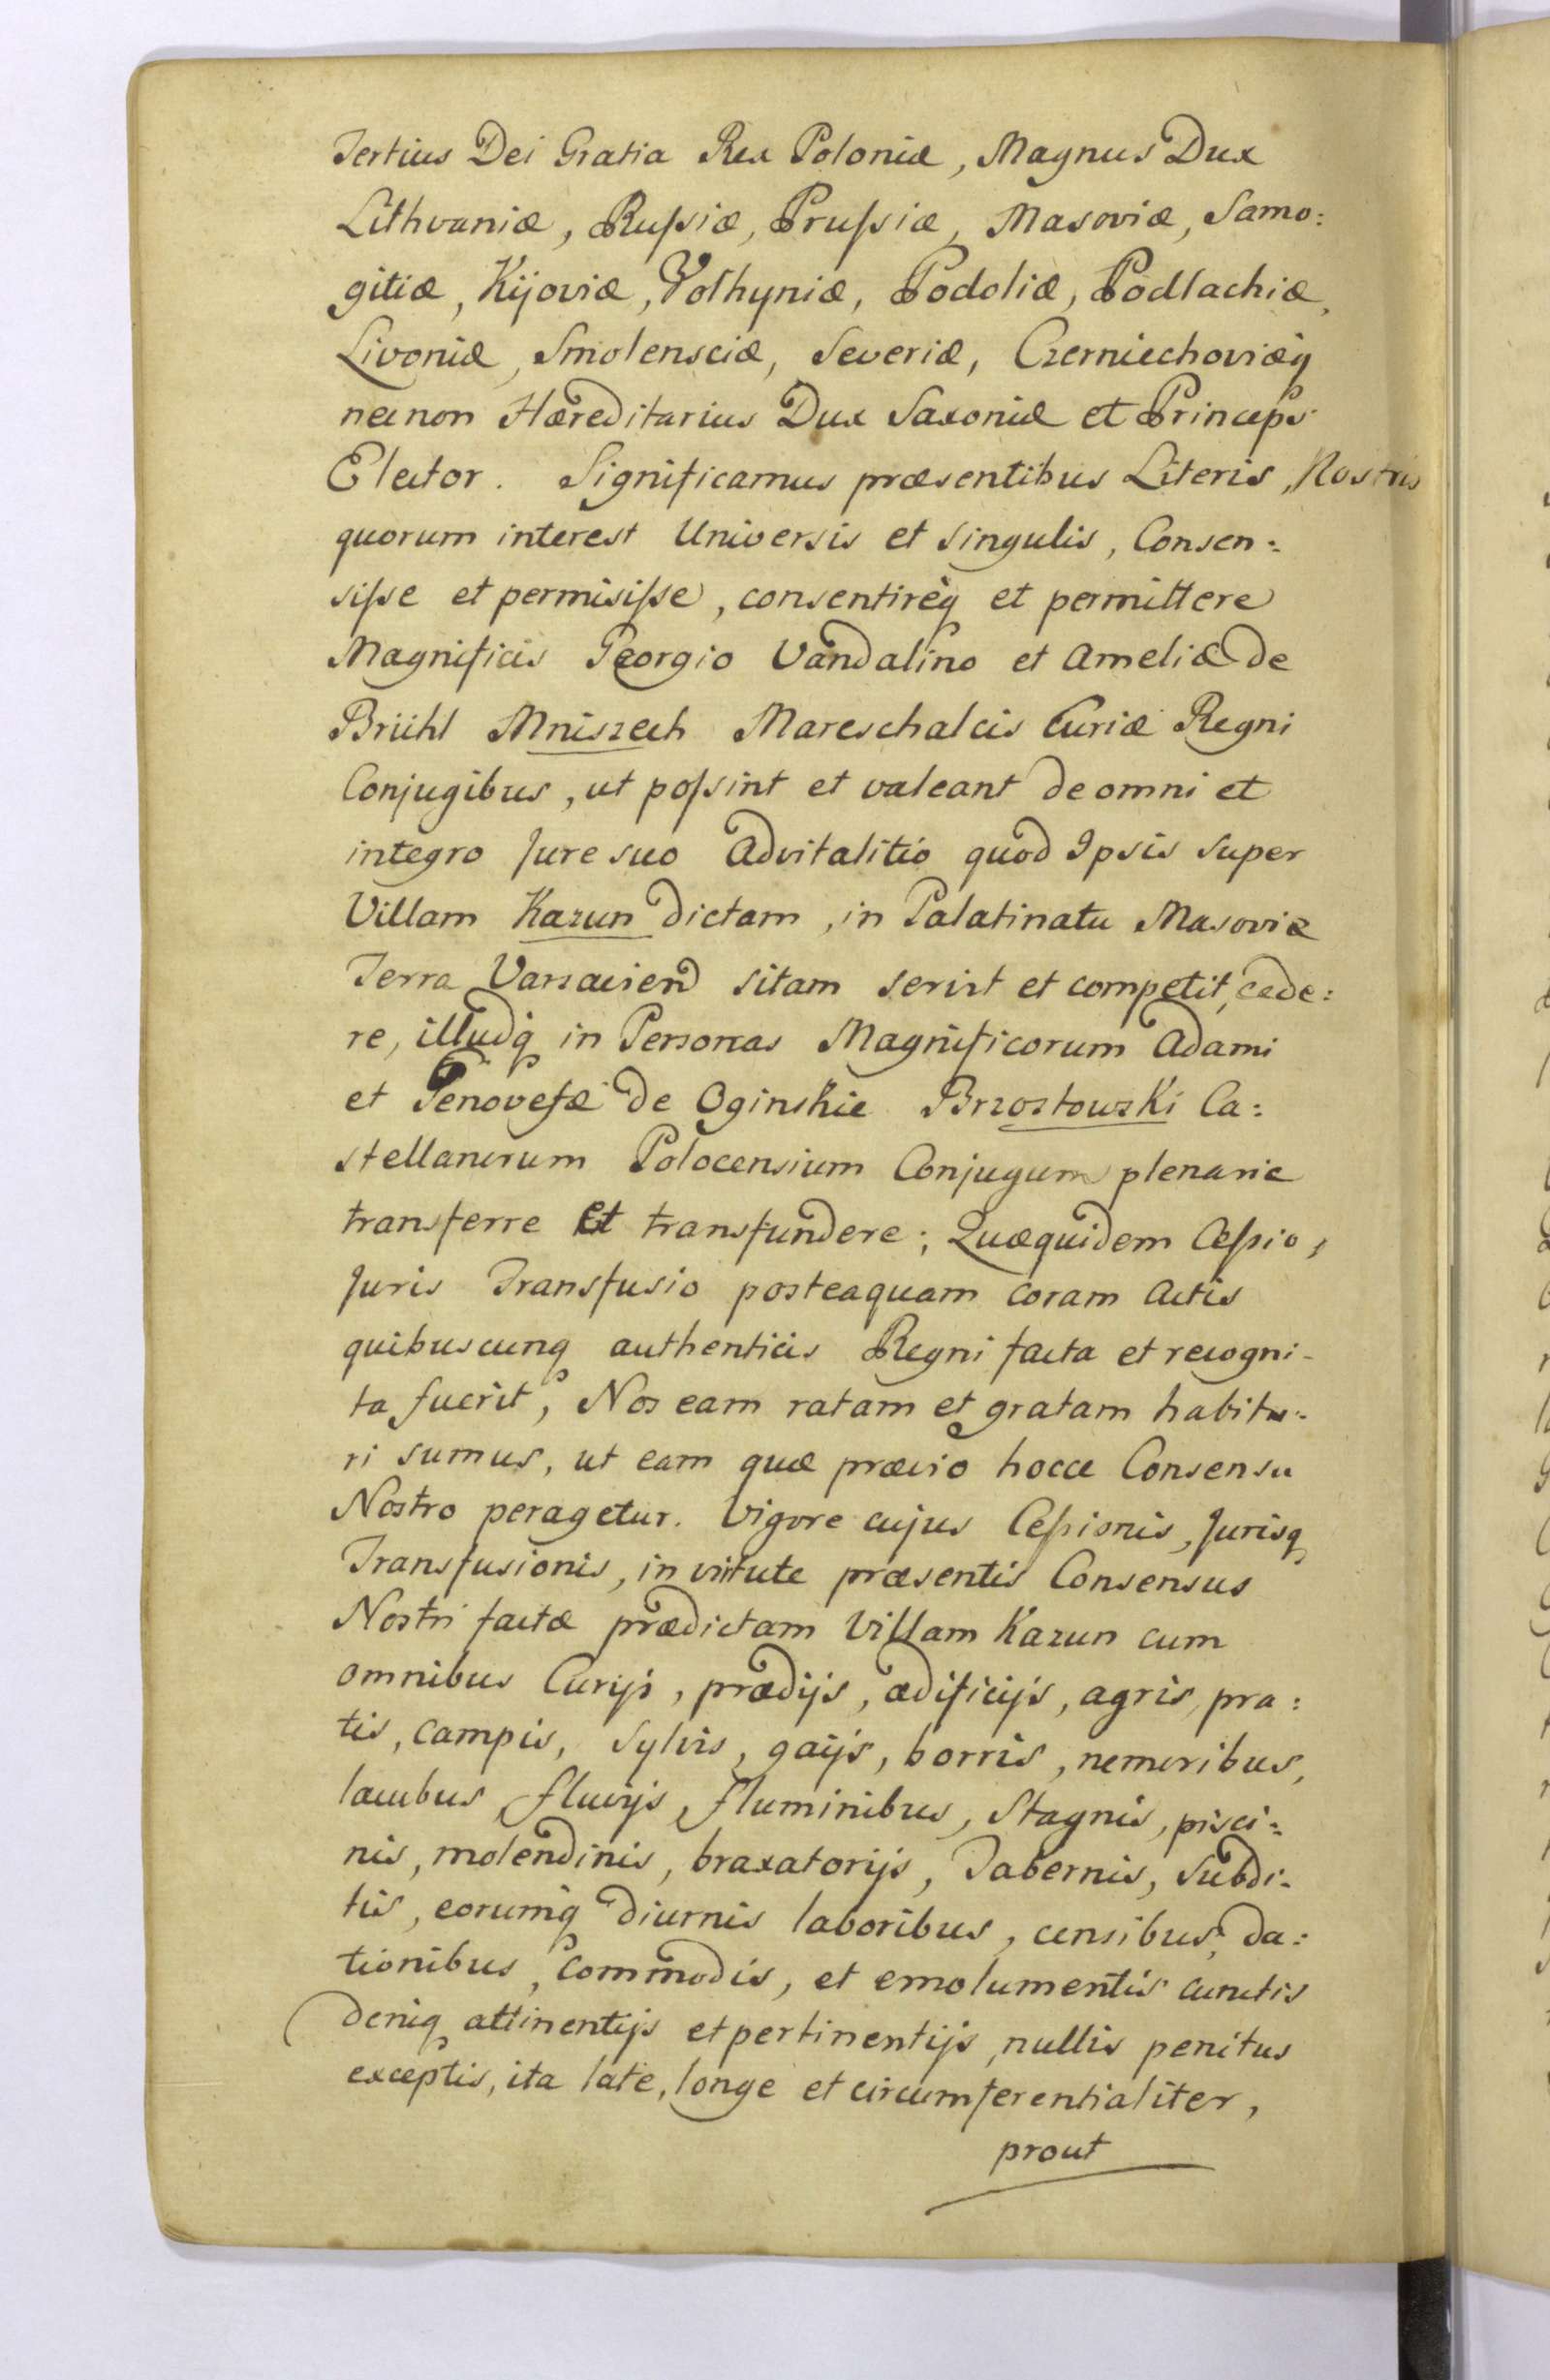 Tertius Dei Gratia Rex Poloniæ, Magnus Dux
Lithvaniæ, Rußiæ, Prußiæ, Masoviæ, Samo:
gitiæ, Kijoviæ, Volhyniæ, Podoliæ, Podlachiæ,
Livoniæ, Smolensciæ, Severiæ, Czerniechoviæq
necnon Hæreditarius Dux Saxoniæ et Princeps
Elector. Significamus præsentibus Literis Nostris
quorum interest Universis et singulis, Consen:
siße et permisiße, consentireq et permittere
Magnificis Georgio Vandalino et Ameliæ de
Brühl Mniszech Mareschalcis Curiæ Regni
Conjugibus, ut poßint et valeant de omni et
integro Jure suo Advitalitio quod Ipsis super
Villam Kazun dictam, in Palatinatu Masoviæ
Terra Varsavien sitam servit et competit, cede:
re, illudq in Personas Magnificorum Adami
et Genovefæ de Oginskie Brzostowski Ca:
stellanorum Polocensium Conjugum plenarie
transferre Et transfundere; Quæquidem Ceßio,
Juris Transfusio posteaquam coram Actis
quibuscunq authenticis Regni facta et recogni-
ta fuerit, Nos eam ratam et gratam habitu:
ri sumus, ut eam quæ prævio hocce Consensu
Nostro peragetur. Vigore cujus Ceßionis, Jurisq
Transfusionis, in virtute præsentis Consensus
Nostri factæ prædictam Villam Kazun cum
omnibus Curijs, prædijs, ædificijs, agris, pra:
tis, campis, sylvis, gaijs, borris, nemoribus,
lacubus, fluvijs, fluminibus, Stagnis, pisci:
nis, molendinis, braxatorijs, Tabernis, Subdi:
tis, eorumq diurnis laboribus, censibus, da:
tionibus, commodis, et emolumentis cunctis
deniq attinentijs et pertinentijs, nullis penitus
exceptis, ita late, longe et circumferentialiter,
prout